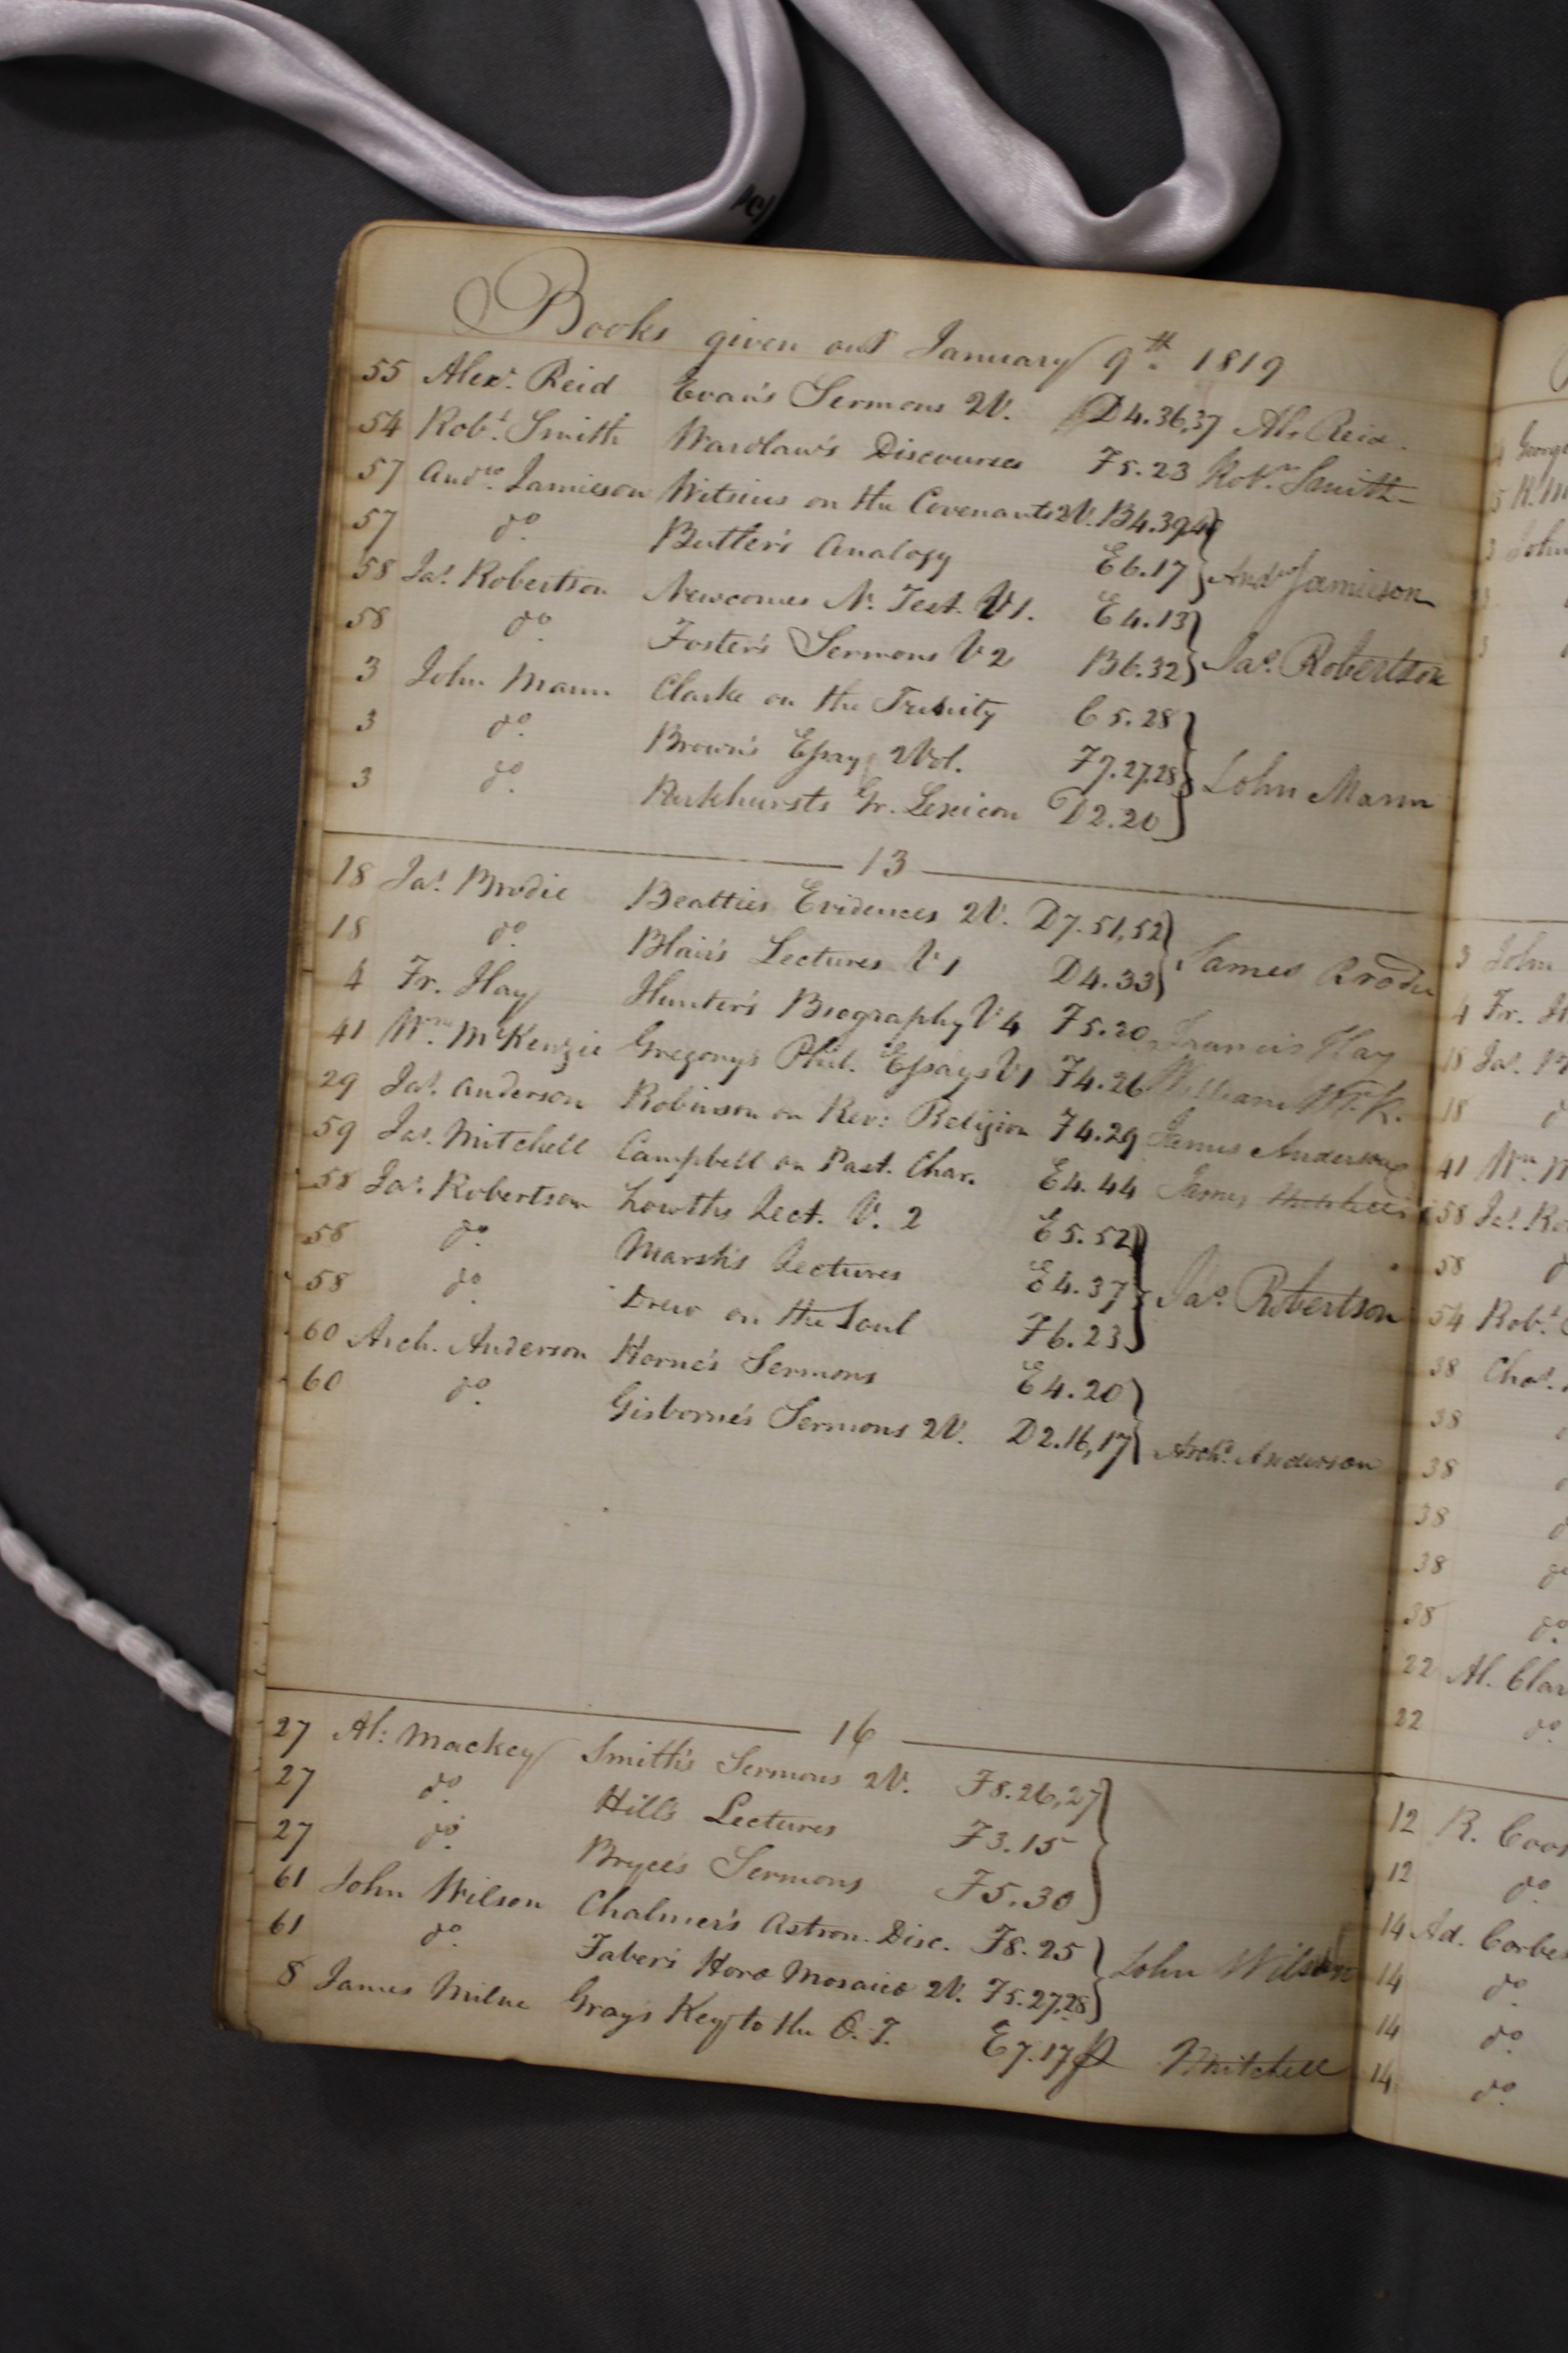 Books given out January 9th. 1819
55 Alexr. Reid Evan's Sermons 2V. D4.36,37 Al. Reid.
54 Robt. Smith Wardlaw's Discourses F5.23 Robt. Smith
57 Andw. Jamieson Witsius on the Covenants 2V. B4.39,40
57 do. Butler's Analogy E6.17 Andw Jamieson
58 Jas. Robertson Newcomes N. Test. V1. E4.13
58 do. Foster's Sermons V2 B6.32 Jas. Robertson
3 John Mann Clarke on the Trinity C5.28
3 do. Brown's Essay 2Vol. F7.27,28 John Mann
3 do. Parkhursts Gr. Lexicon D2.20
13
18 Jas. Brodie Beatties Evidences 2V. D7.51,52
18 do. Blair's Lectures V1 D4.33 James Brodie
4 Fr. Hay Hunter's Biography V4 F5.20 Francis Hay
41 Wm. McKenzie Gregory's Phil. Essays V1 F4.26 William McK.
29 Jas. Anderson Robinson on Rev: Religion F4.29 James Anderson
59 Jas. Mitchell Campbell on Past. Char. E4.44 James Mitchell
58 Jas. Robertson Lowths Lect. V. 2 E5.52
58 do. Marsh's Lectures E4.37 Jas. Robertson
58 do. Drew on the Soul F6.23
60 Arch. Anderson Horne's Sermons E4.20
60 do. Gisborne's Sermons 2V. D2.16,17 Archd. Anderson
16
27 Al: Mackey Smith's Sermons 2V. F8.26,27
27 do. Hill's Lectures F3.15
27 do. Bryce's Sermons F5.30
61 John Wilson Chalmer's Astron. Disc. F8.25
61 do. Faber's Horæ Mosaicæ 2V. F5.27,28 John Wilson
8 James Milne Gray's Key to the O.T. E7.17 Mitchell
4 George
5
3 John
3
3
3 John
4 Fr. H
18 Jas.
18
41 Wm
58 Js. Ro
58
54 Robt.
38 Chas.
38
38
38
38
38 do.
22 Al. Clar
22 do.
12 R. Coo
12 do.
14 Ad. Corbe
14 do.
14 do.
14 do.